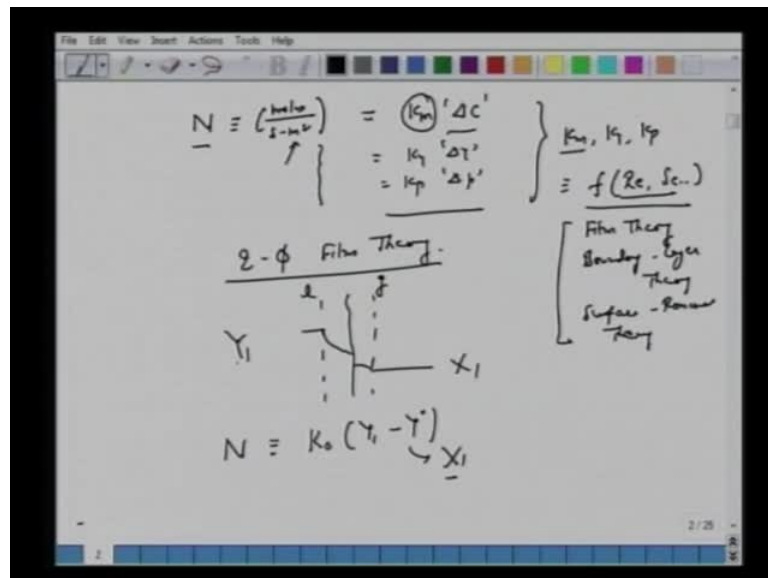 File Edit View Insert Actions Tools Help
N ≡ (mole / s-m²) = Km 'ΔC'
= Ky 'Δy'
= Kp 'Δp'
Km, Ky, Kp
≡ f(Re, Sc..)
Film Theory
Boundary-Layer
Theory
Surface-Renewal
Theory
2-φ Film Theory.
l g
Y₁ X₁
N ≡ K₀ (Y₁ - Y*)
↳ X₁
2 / 25
2